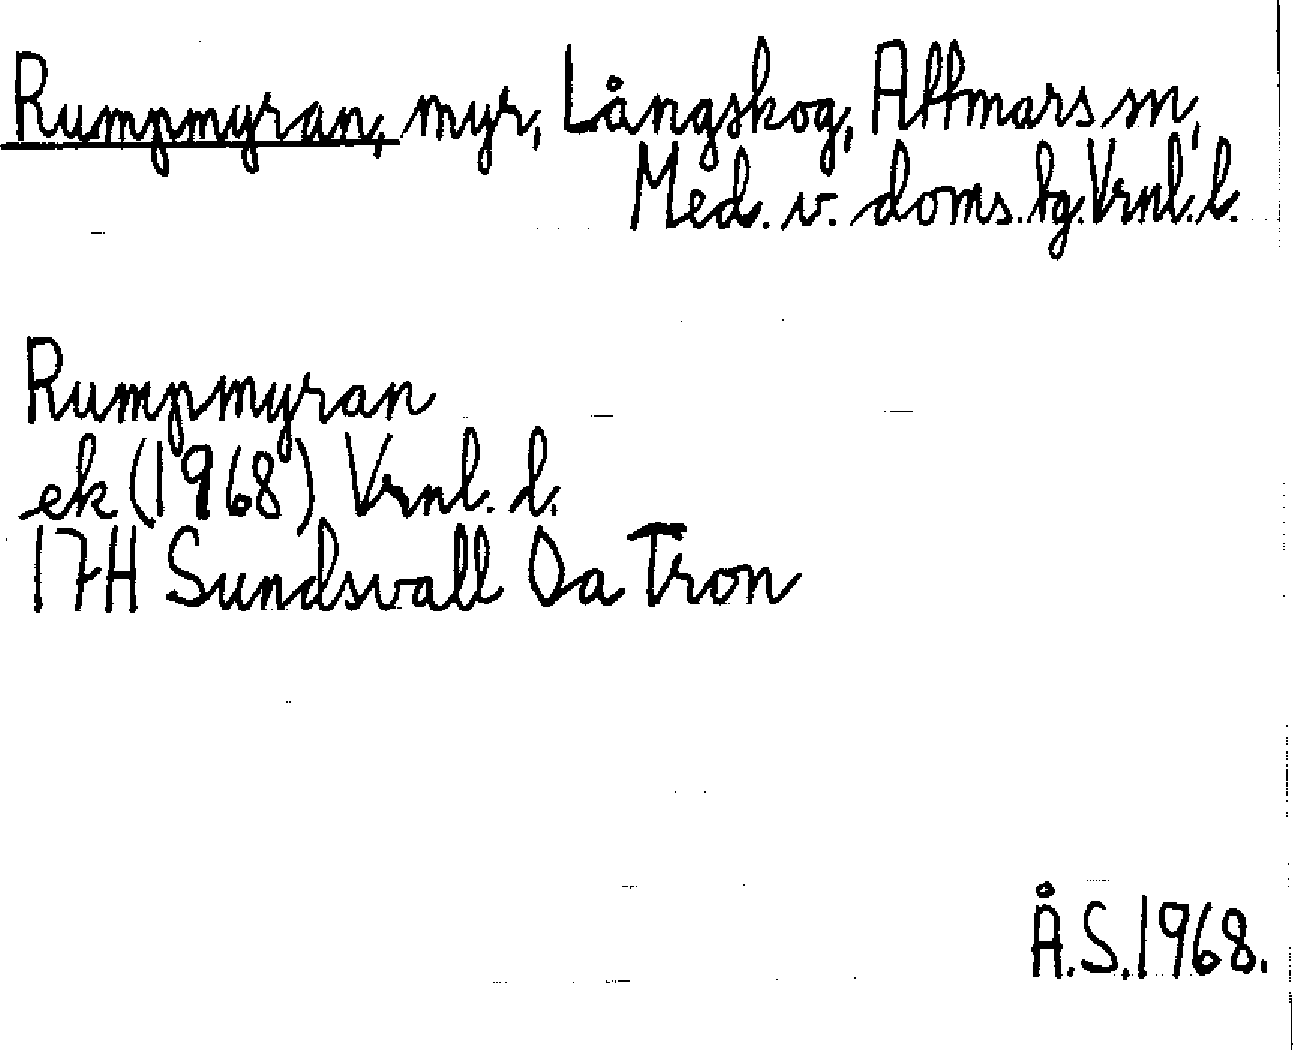 Rumpmyran, myr, Långskog, Attmars sn,
Med. v. doms. hg. Vrnl. l.
Rumpmyran
ek (1968) Vrnl. l.
17H Sundsvall Oa Tron
Å.S. 1968.